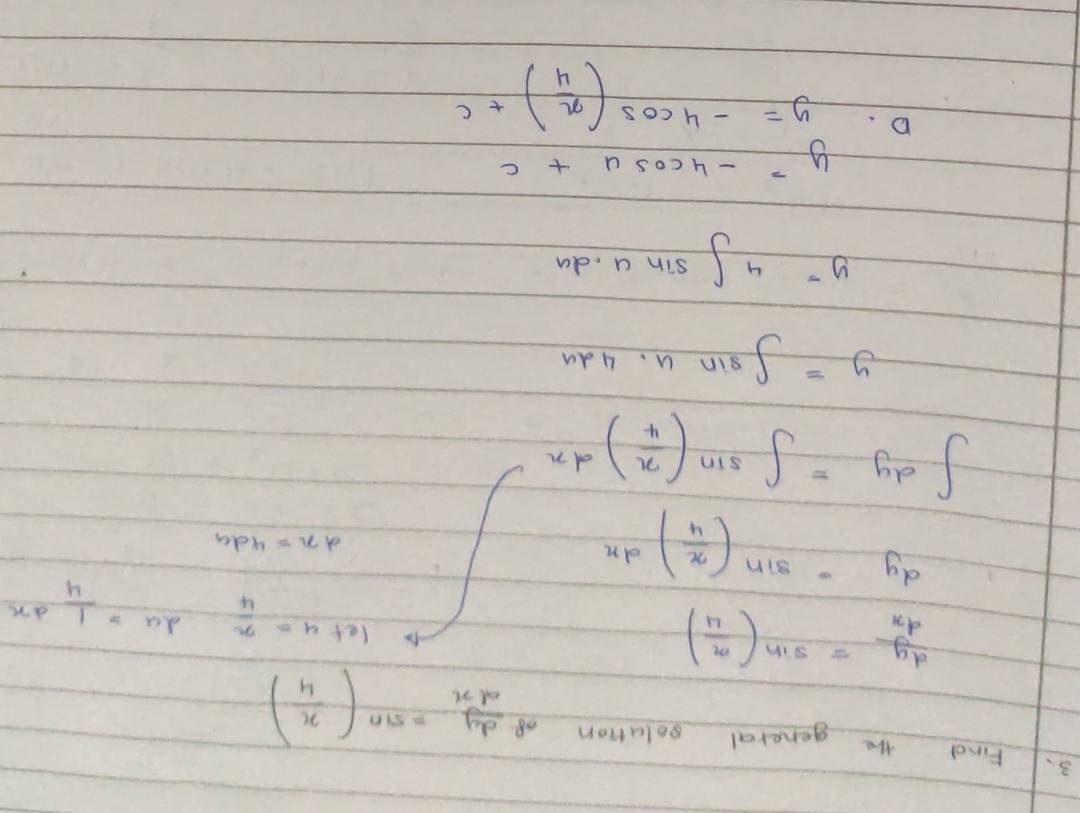 3. Find the general solution of dy/dx = sin (x/4)
dy/dx = sin (x/4)
let u = x/4 du = 1/4 dx
dy = sin (x/4) dx
dx = 4du
∫ dy = ∫ sin (x/4) dx
y = ∫ sin u . 4du
y = 4 ∫ sin u . du
y = - 4cos u + c
D. y = - 4cos (x/4) + c